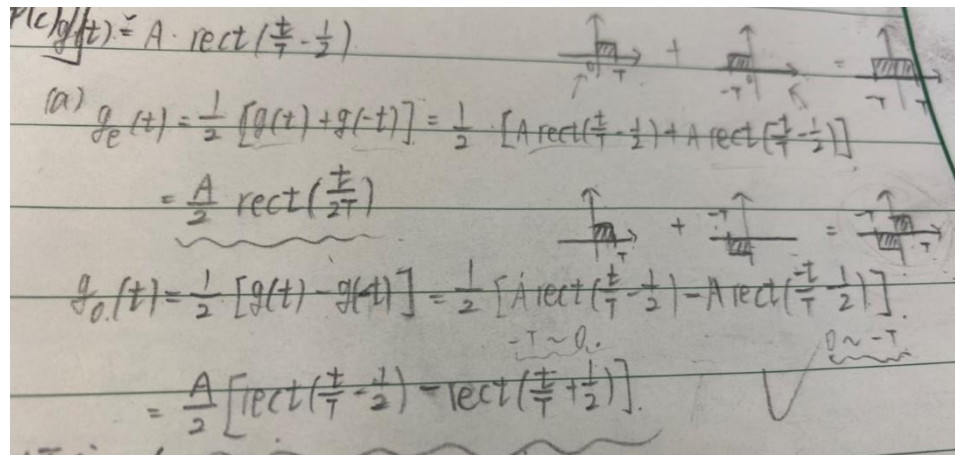 g(t) = A · rect(t/T - 1/2)
0 T + -T 0 = -T T
(a) ge(t) = 1/2 [g(t) + g(-t)] = 1/2 · [A rect(t/T - 1/2) + A rect(-t/T - 1/2)]
= A/2 rect(t/2T)
T + -T = -T T
go(t) = 1/2 [g(t) - g(-t)] = 1/2 [A rect(t/T - 1/2) - A rect(-t/T - 1/2)].
-T ~ 0. 0 ~ -T
= A/2 [rect(t/T - 1/2) - rect(t/T + 1/2)].